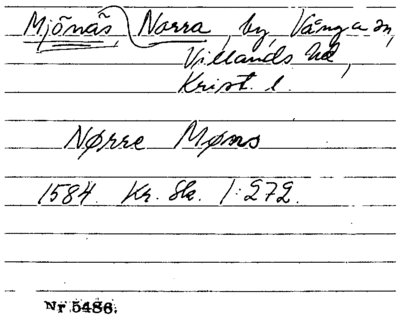 Mjönäs Norra, by, Vånga sn,
Villands hd,
Krist. l.
Nørre Møns
1584 Kr. Sk. 1:272.
Nr 5486.